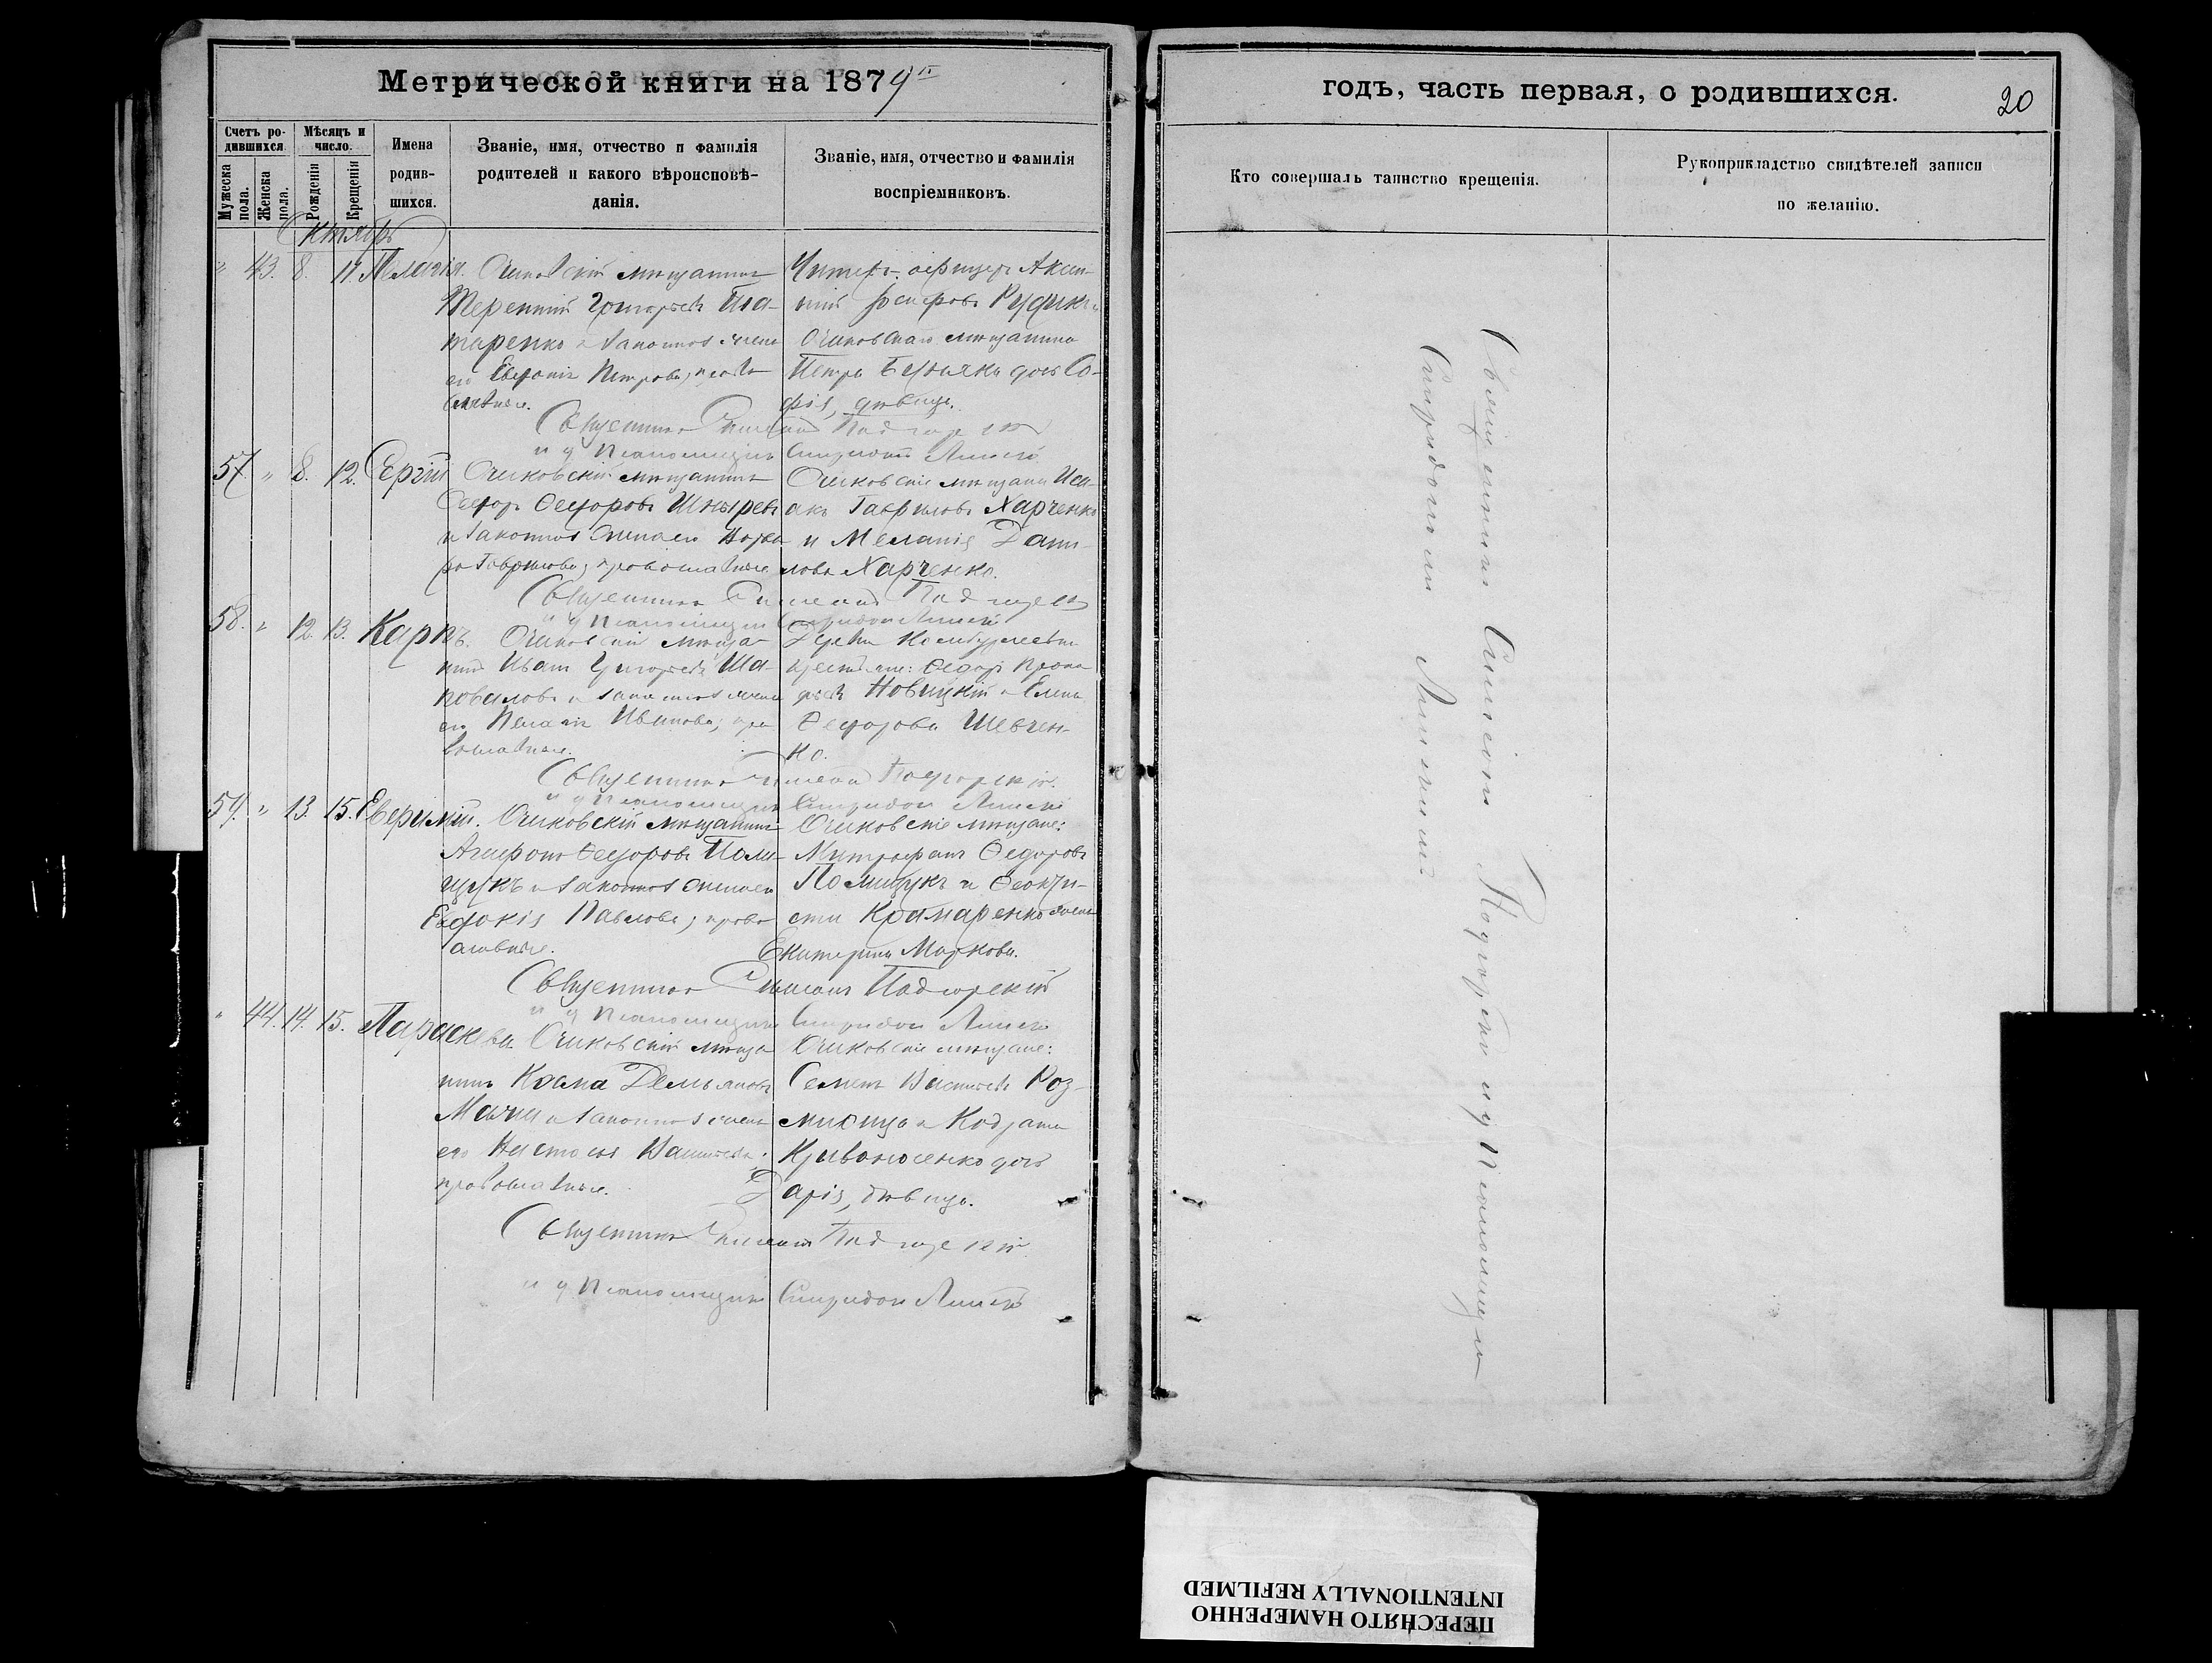 Метрической книги на 1879
годъ, часть первая, о родившихся.
20
Счетъ ро-
дившихся.
Мѣсяцъ и
число.
Мужеска
пола.
Женска
пола.
Рожденія
Крещенія
Имена
родив-
шихся.
Званіе, имя, отчество и фамилія
родителей и какого вѣроисповѣ-
данія.
Званіе, имя, отчество и фамилія
воспріемниковъ.
Кто совершалъ таинство крещенія.
Рукоприкладство свидѣтелей записи
по желанію.
Октябрь
" 43. 8. 11. Пелагія.
Очаковскій мѣщанинъ
Терентій Григорьевъ
таренко и законная жена
его Петрова, право
славные.
Унтеръ-офицеръ
Очаковскаго мѣщанина
Петра дочь Со-
фія, дѣвица.
Священникъ Симеонъ Подгорскій
и д Псаломщика Спиридонъ
57 " 8. 12. Сергій
Очаковскій мѣщанинъ
Федоръ Федоровъ Шнырев
и законная жена его
Гаврилова, православные
Очаковскіе мѣщане Иса-
акъ Гавриловъ Харченко
и Меланія Дани-
лова Харченко.
Священникъ Симеонъ Подгорскій
и д Псаломщика Спиридонъ
58. " 12. 13. Карпъ.
Очаковскій мѣща-
нинъ Иванъ Григорьевъ Ша-
повалова и законная жена
его Пелагія Иванова, пра
вославные.
крестьяне: Федоръ
Новицкій и Елена
Федорова Шевчен-
ко.
Священникъ Симеонъ Подгорскій.
и д Псаломщика Спиридонъ
59. " 13. 15. Евфимій.
Очаковскій мѣщанинъ
Федоровъ Поли-
щукъ и законная жена его
Евдокія Павлова, право
славные.
Очаковскіе мѣщане:
Митрофанъ Федоровъ
Полищукъ и
Крамаренко жена
Екатерина Маркова.
Священникъ Симеонъ Подгорскій
и д Псаломщика Спиридонъ
" 44. 14. 15. Параскева.
Очаковскій мѣща
нинъ Косма Демьяновъ
и законная жена
его Настасья Васильева,
православные.
Очаковскіе мѣщане:
Семенъ Васильевъ Роз-
и Кодрата
Кривоносенко дочь
Дарія, дѣвица.
Священникъ Симеонъ Подгорскій
и д Псаломщика Спиридонъ
Священникъ Симеонъ Подгорскій и д Псаломщика
Спиридонъ
ПЕРЕСНЯТО НАМЕРЕННО
INTENTIONALLY REFILMED